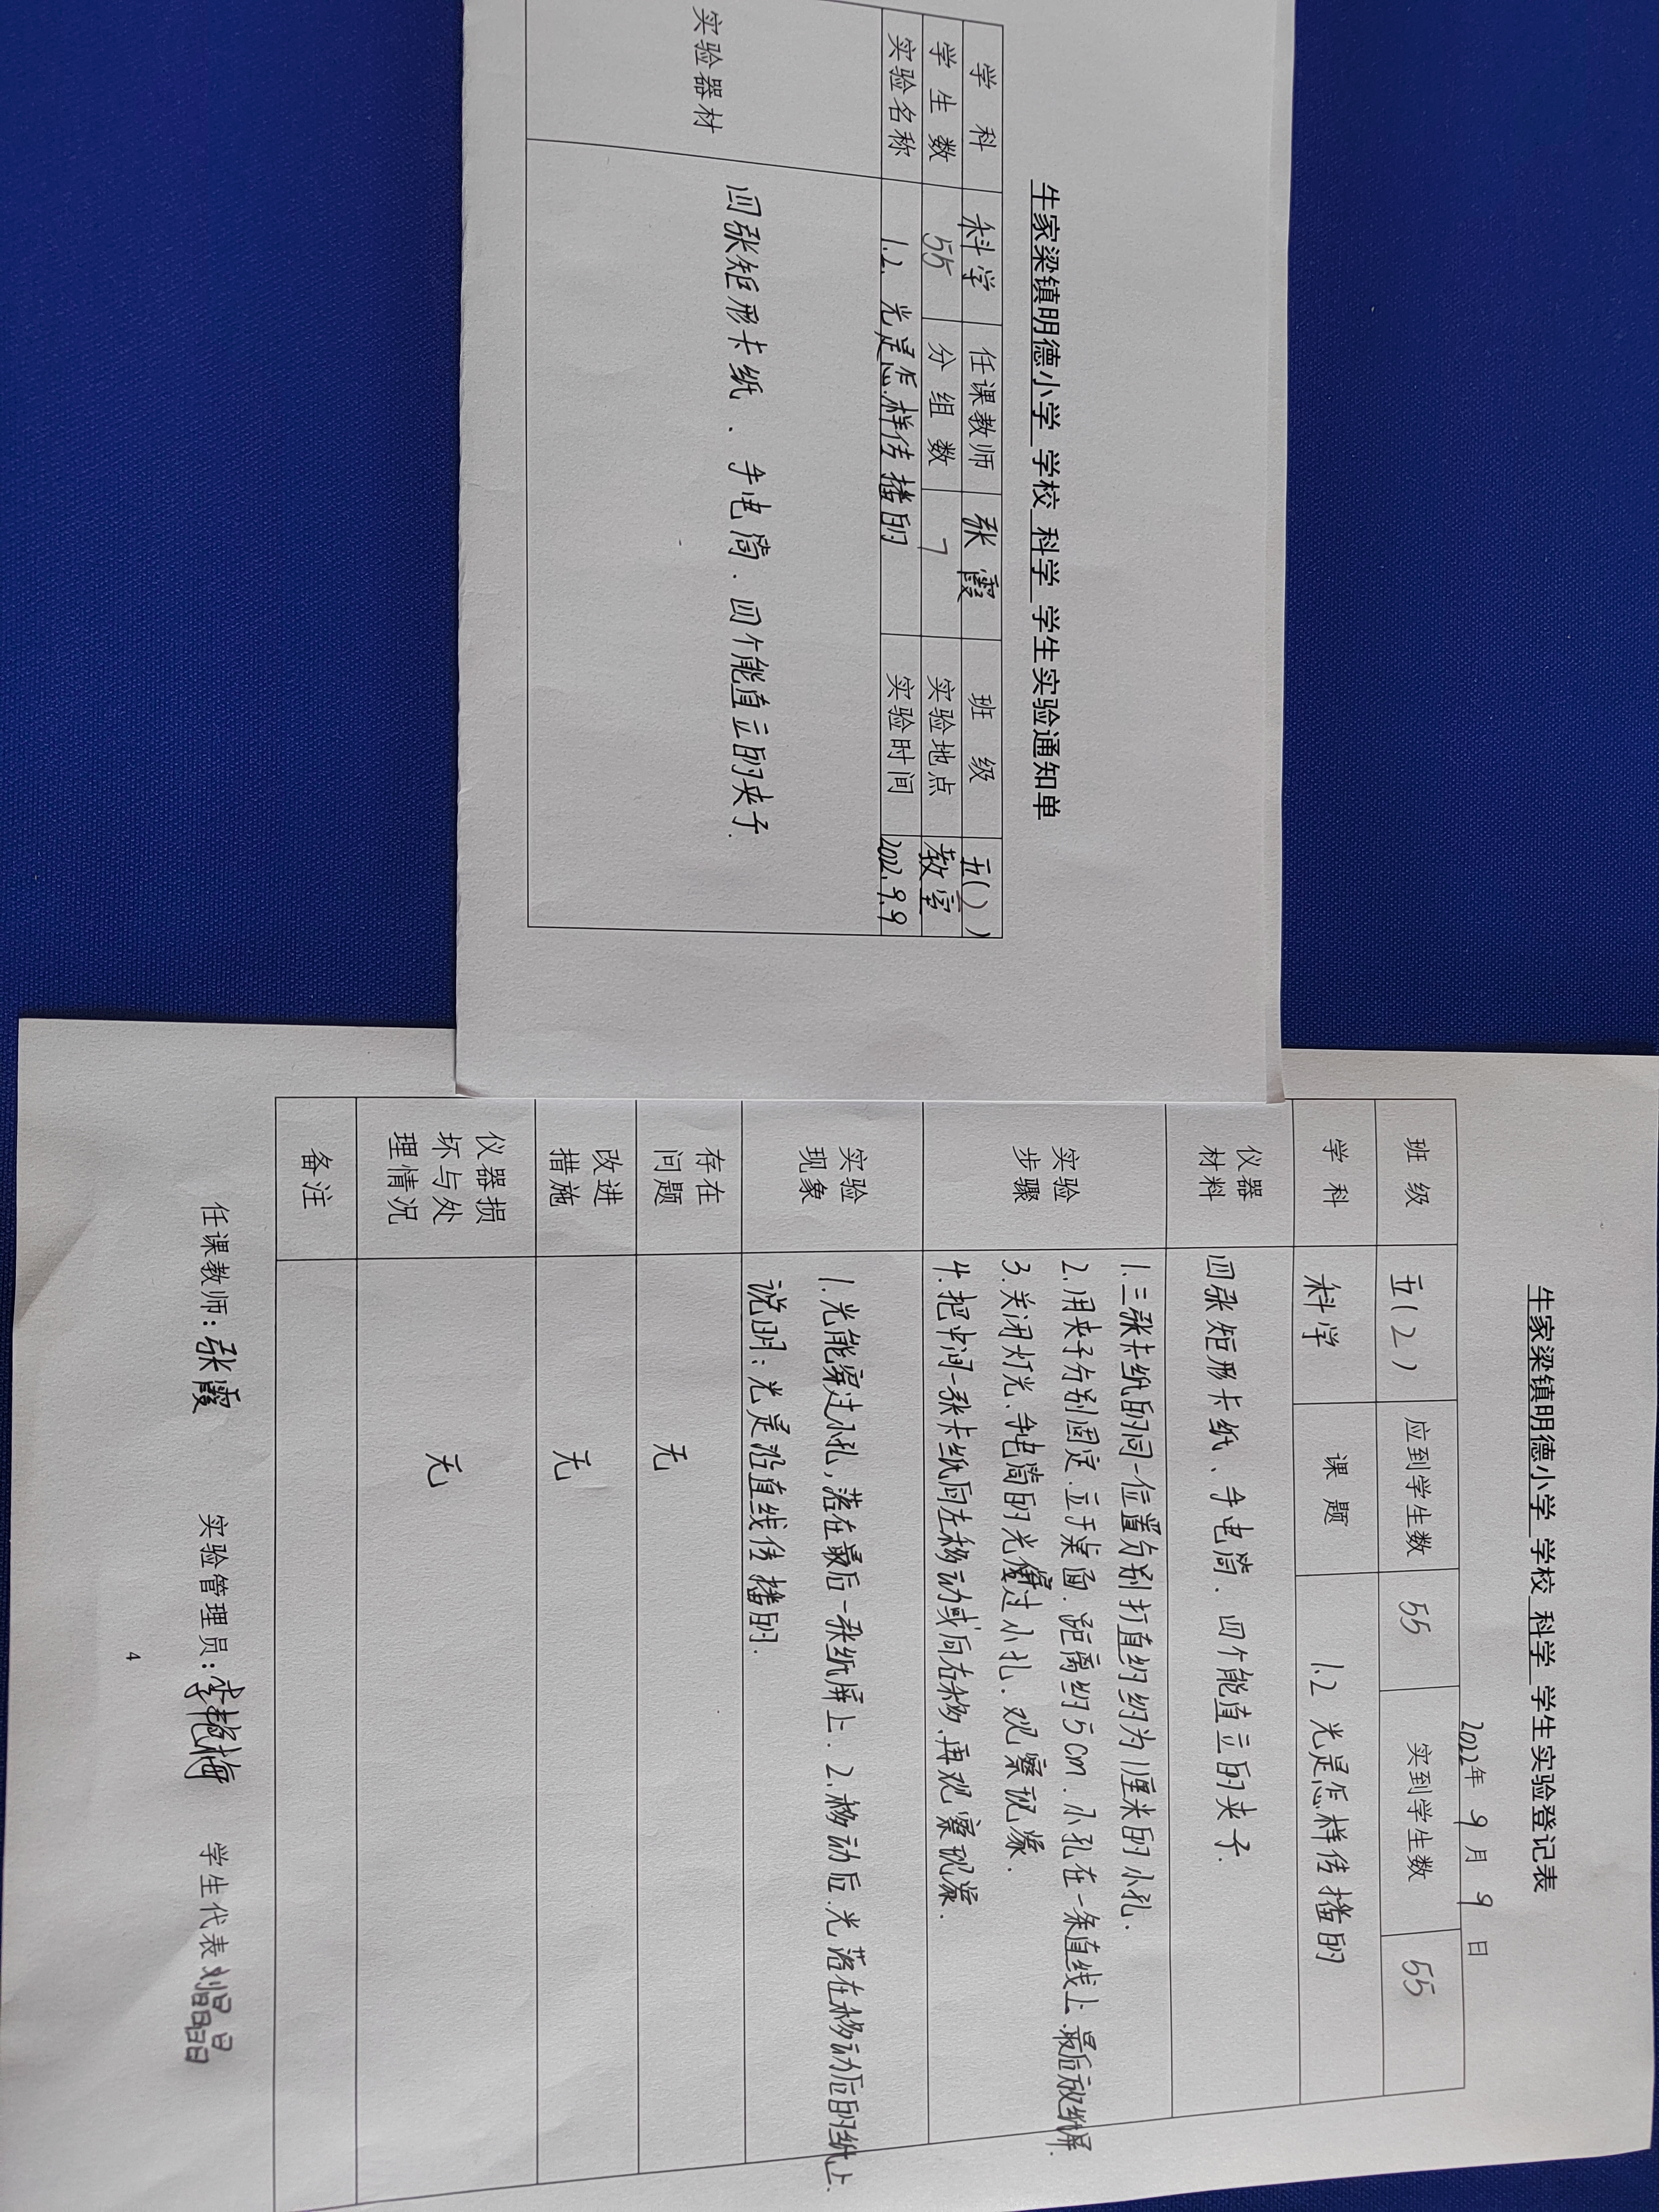 牛家梁镇明德小学 学校 科学 学生实验通知单
学 科 科学 任课教师 张霞 班 级 五( )
学 生 数 55 分 组 数 7 实验地点 教室
实验名称 1.2. 光是怎样传播的 实验时间 2022.9.9
实验器材 四张矩形卡纸、手电筒.四个能直立的夹子.
牛家梁镇明德小学 学校 科学 学生实验登记表
2022年 9 月 9 日
班 级 五(2) 应到学生数 55 实到学生数 55
学 科 科学 课 题 1.2 光是怎样传播的
仪器
材料
四张矩形卡纸、手电筒.四个能直立的夹子.
实验
步骤
1.三张卡纸的同一位置分别打直约约为1厘米的小孔.
2.用夹子分别固定.立于桌面.距离约5cm.小孔在一条直线上.最后放纸屏.
3.关闭灯光、手电筒的光穿过小孔.观察现象.
4.把中间一张卡纸向左移动或向右移.再观察现象.
实验
现象
1.光能穿过小孔,落在最后一张纸屏上.2.移动后.光落在移动后的纸上.
说明:光是沿直线传播的.
存在
问题
无
改进
措施
无
仪器损
坏与处
理情况
无
备注
任课教师:张霞 实验管理员:李艳梅 学生代表
4